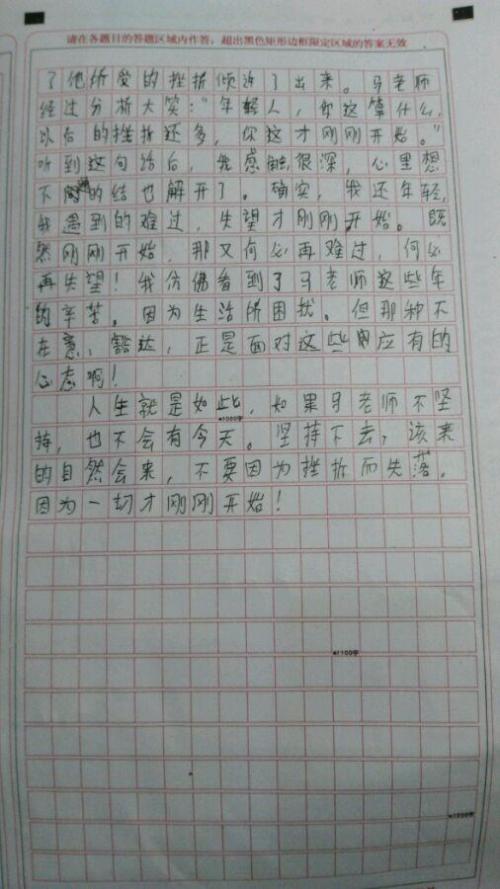 请在各题目的答题区域内作答，超出黑色矩形边框限定区域的答案无效
了他所受的挫折倾诉了出来。马老师
经过分析大笑：“年轻人，你这算什么，
以后的挫折还多，你这才刚刚开始。”
听到这句话后，我感触很深，心里想
不的结也解开了。确实，我还年轻，
我遇到的难过，失望才刚刚开始。既
然刚刚开始，那又何必再难过，何必
再失望！我仿佛看到了马老师这些年
的辛苦。因为生活所困扰。但那种不
在意，豁达，正是面对这些应有的
心态啊！
人生就是如此，如果马老师不坚
持，也不会有今天。坚持下去，该来
的自然会来，不要因为挫折而失落，
因为一切才刚刚开始！
▲1000字
▲1100字
▲1200字